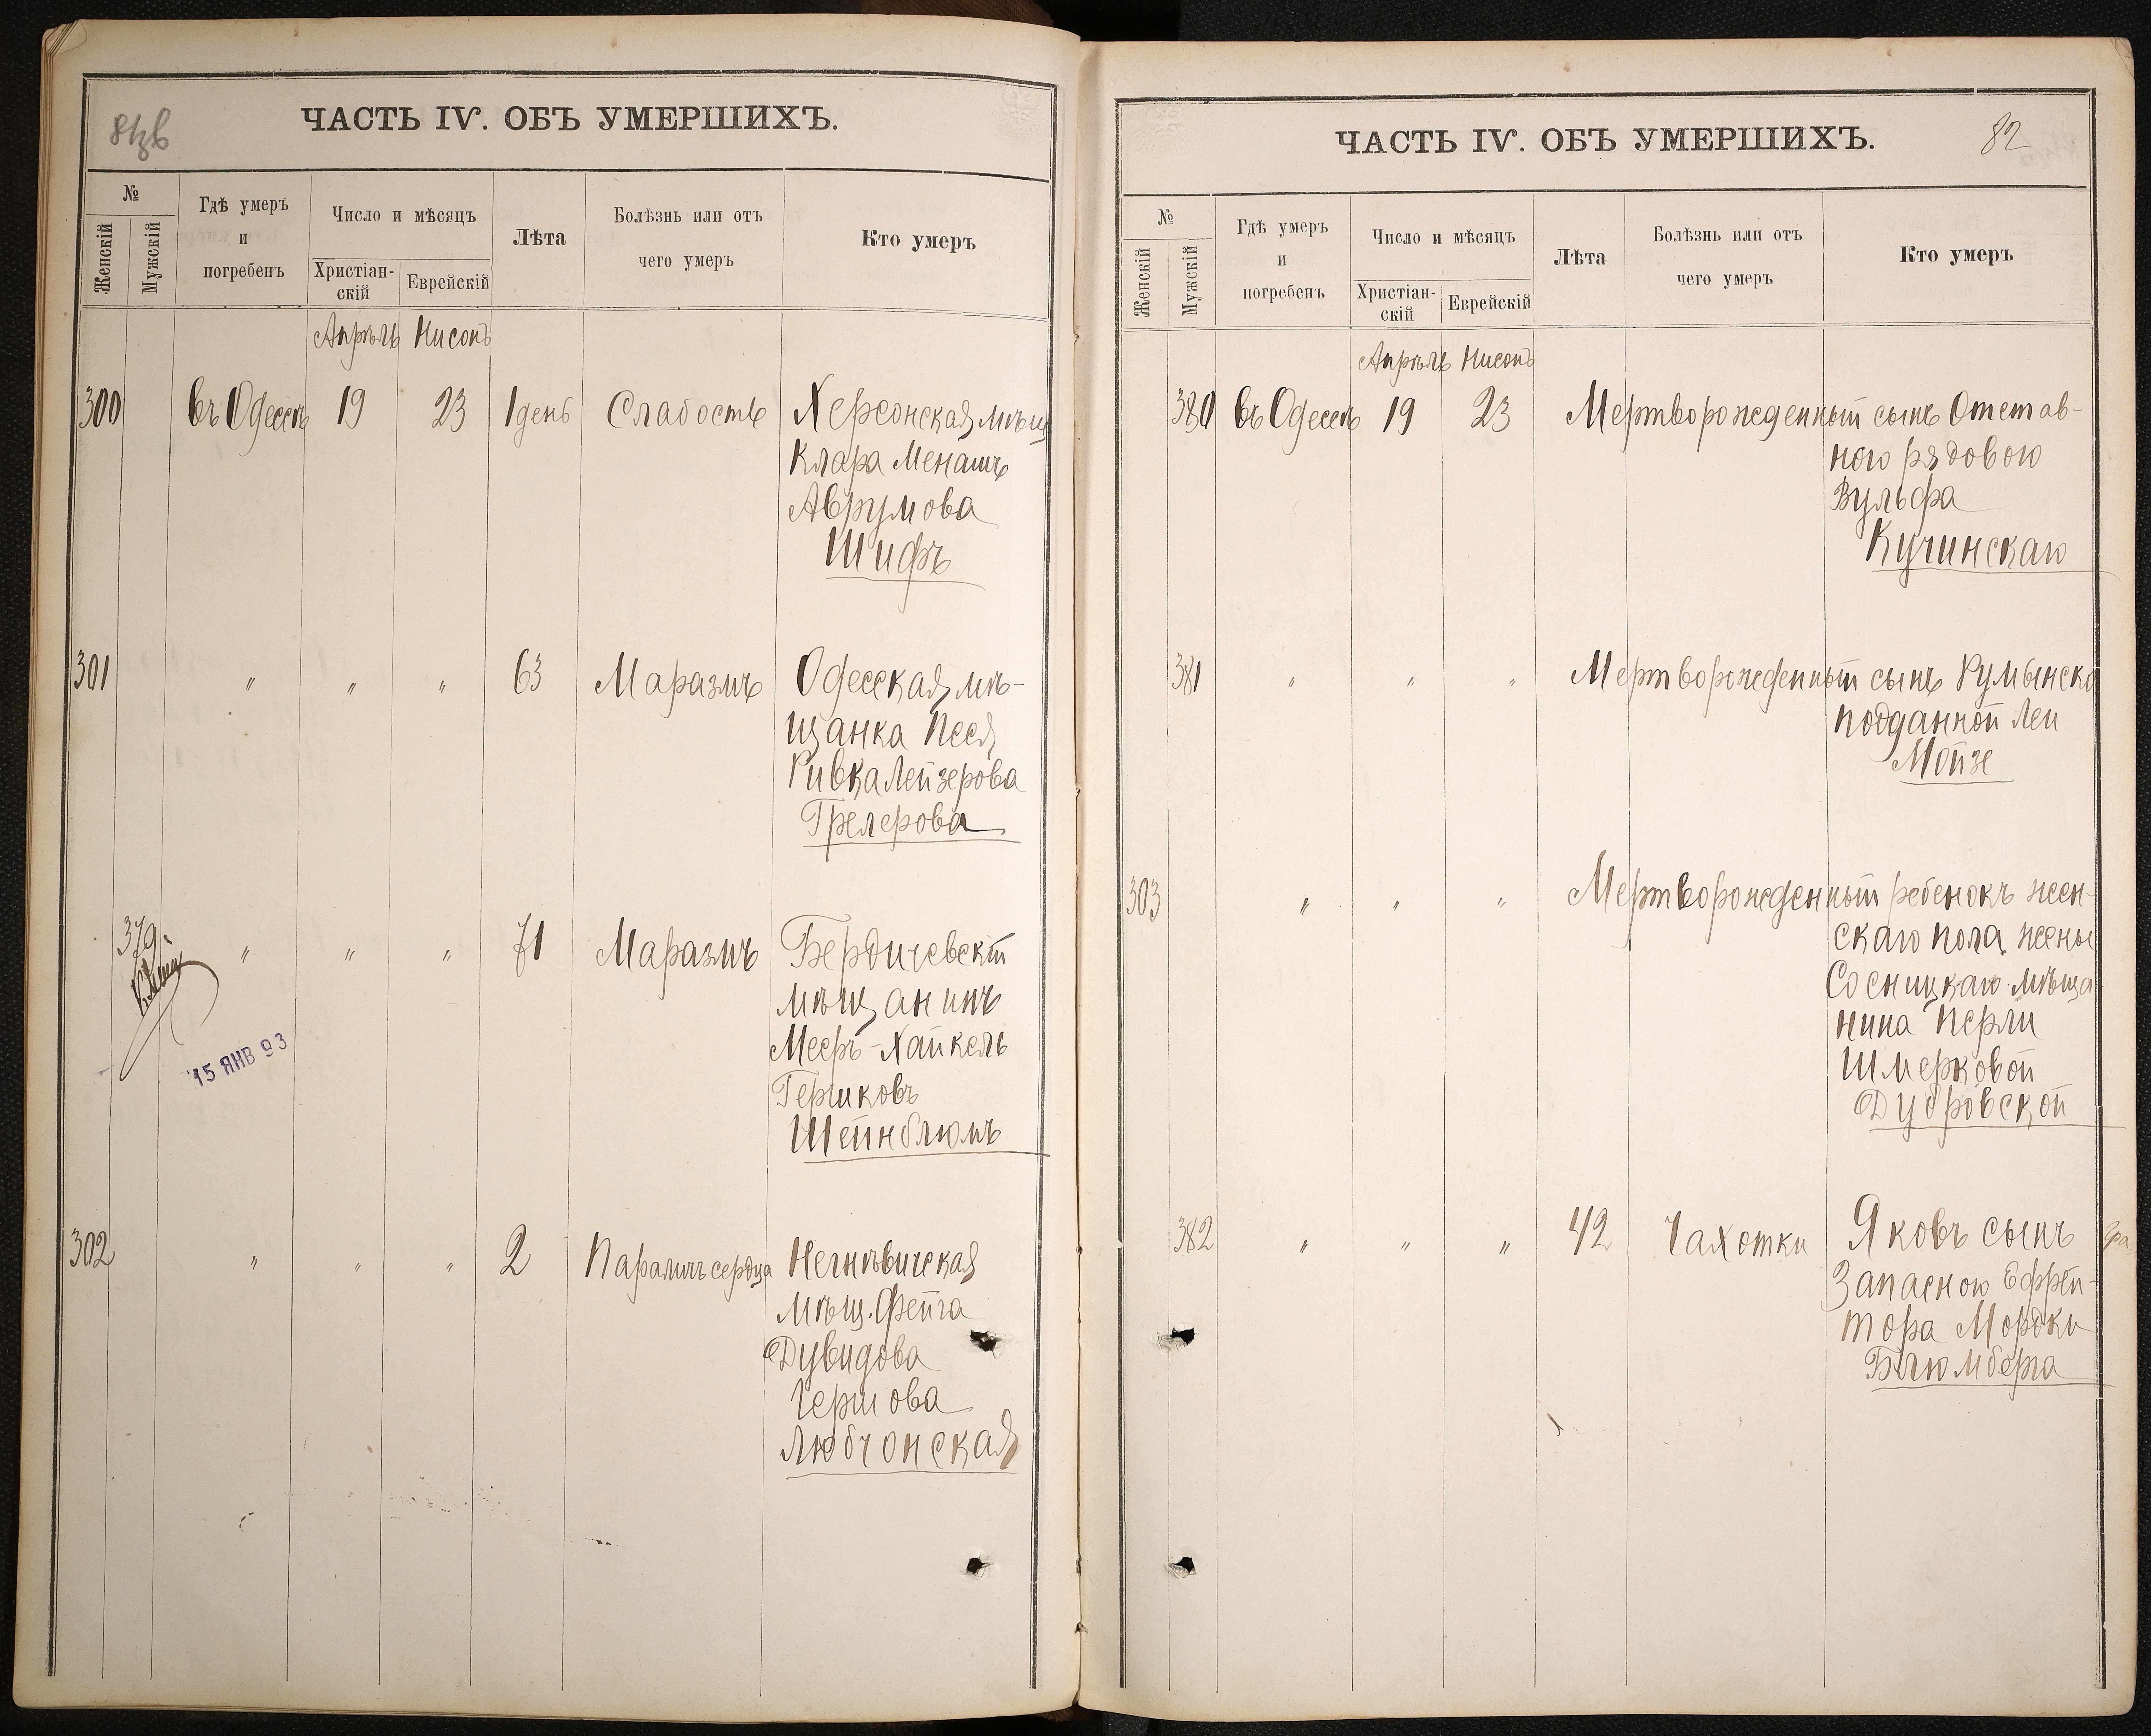 ЧАСТЬ IV. ОБЪ УМЕРШИХЪ.
№
Женскій
Мужскій
Гдѣ умеръ
и
погребенъ
Число и мѣсяцъ
Христіан-
скій
Еврейскій
Лѣта
Болѣзнь или отъ
чего умеръ
Кто умеръ
Апрѣль Нисонъ
300 въ Одессѣ 19 23 1 день Слабость Херсонская мѣщ
Клара Менашъ
Аврумова
Шифъ
301 " " " 63 Маразмъ Одесская мѣ-
щанка Песя
Ривка Лейзерова
Грелерова
379 " " " 71 Маразмъ Бердичевскій
мѣщанинъ
Мееръ-Хайкель
Гершковъ
Шейнблюмъ
15 ЯНВ 93
302 " " " 2 Параличъ сердца Негнѣвичская
мѣщ. Фейга
Дувидова
Гершова
Любчонская
ЧАСТЬ IV. ОБЪ УМЕРШИХЪ.
82
№
Женскій
Мужскій
Гдѣ умеръ
и
погребенъ
Число и мѣсяцъ
Христіан-
скій
Еврейскій
Лѣта
Болѣзнь или отъ
чего умеръ
Кто умеръ
Апрѣль Нисонъ
380 въ Одессѣ 19 23 Мертворожденный сынъ Отстав-
ного рядового
Вульфа
Кучинскаго
381 " " " Мертворожденный сынъ Румынско
подданной Леи
Мойзе
303 " " " Мертворожденный ребенокъ жен-
скаго пола жены
Сосницкаго мѣща
нина Перли
Шмерковой
Дубровской
382 " " " 42 Чахотки Яковъ сынъ
Запасного Ефрей-
тора Мордки
Блюмберга